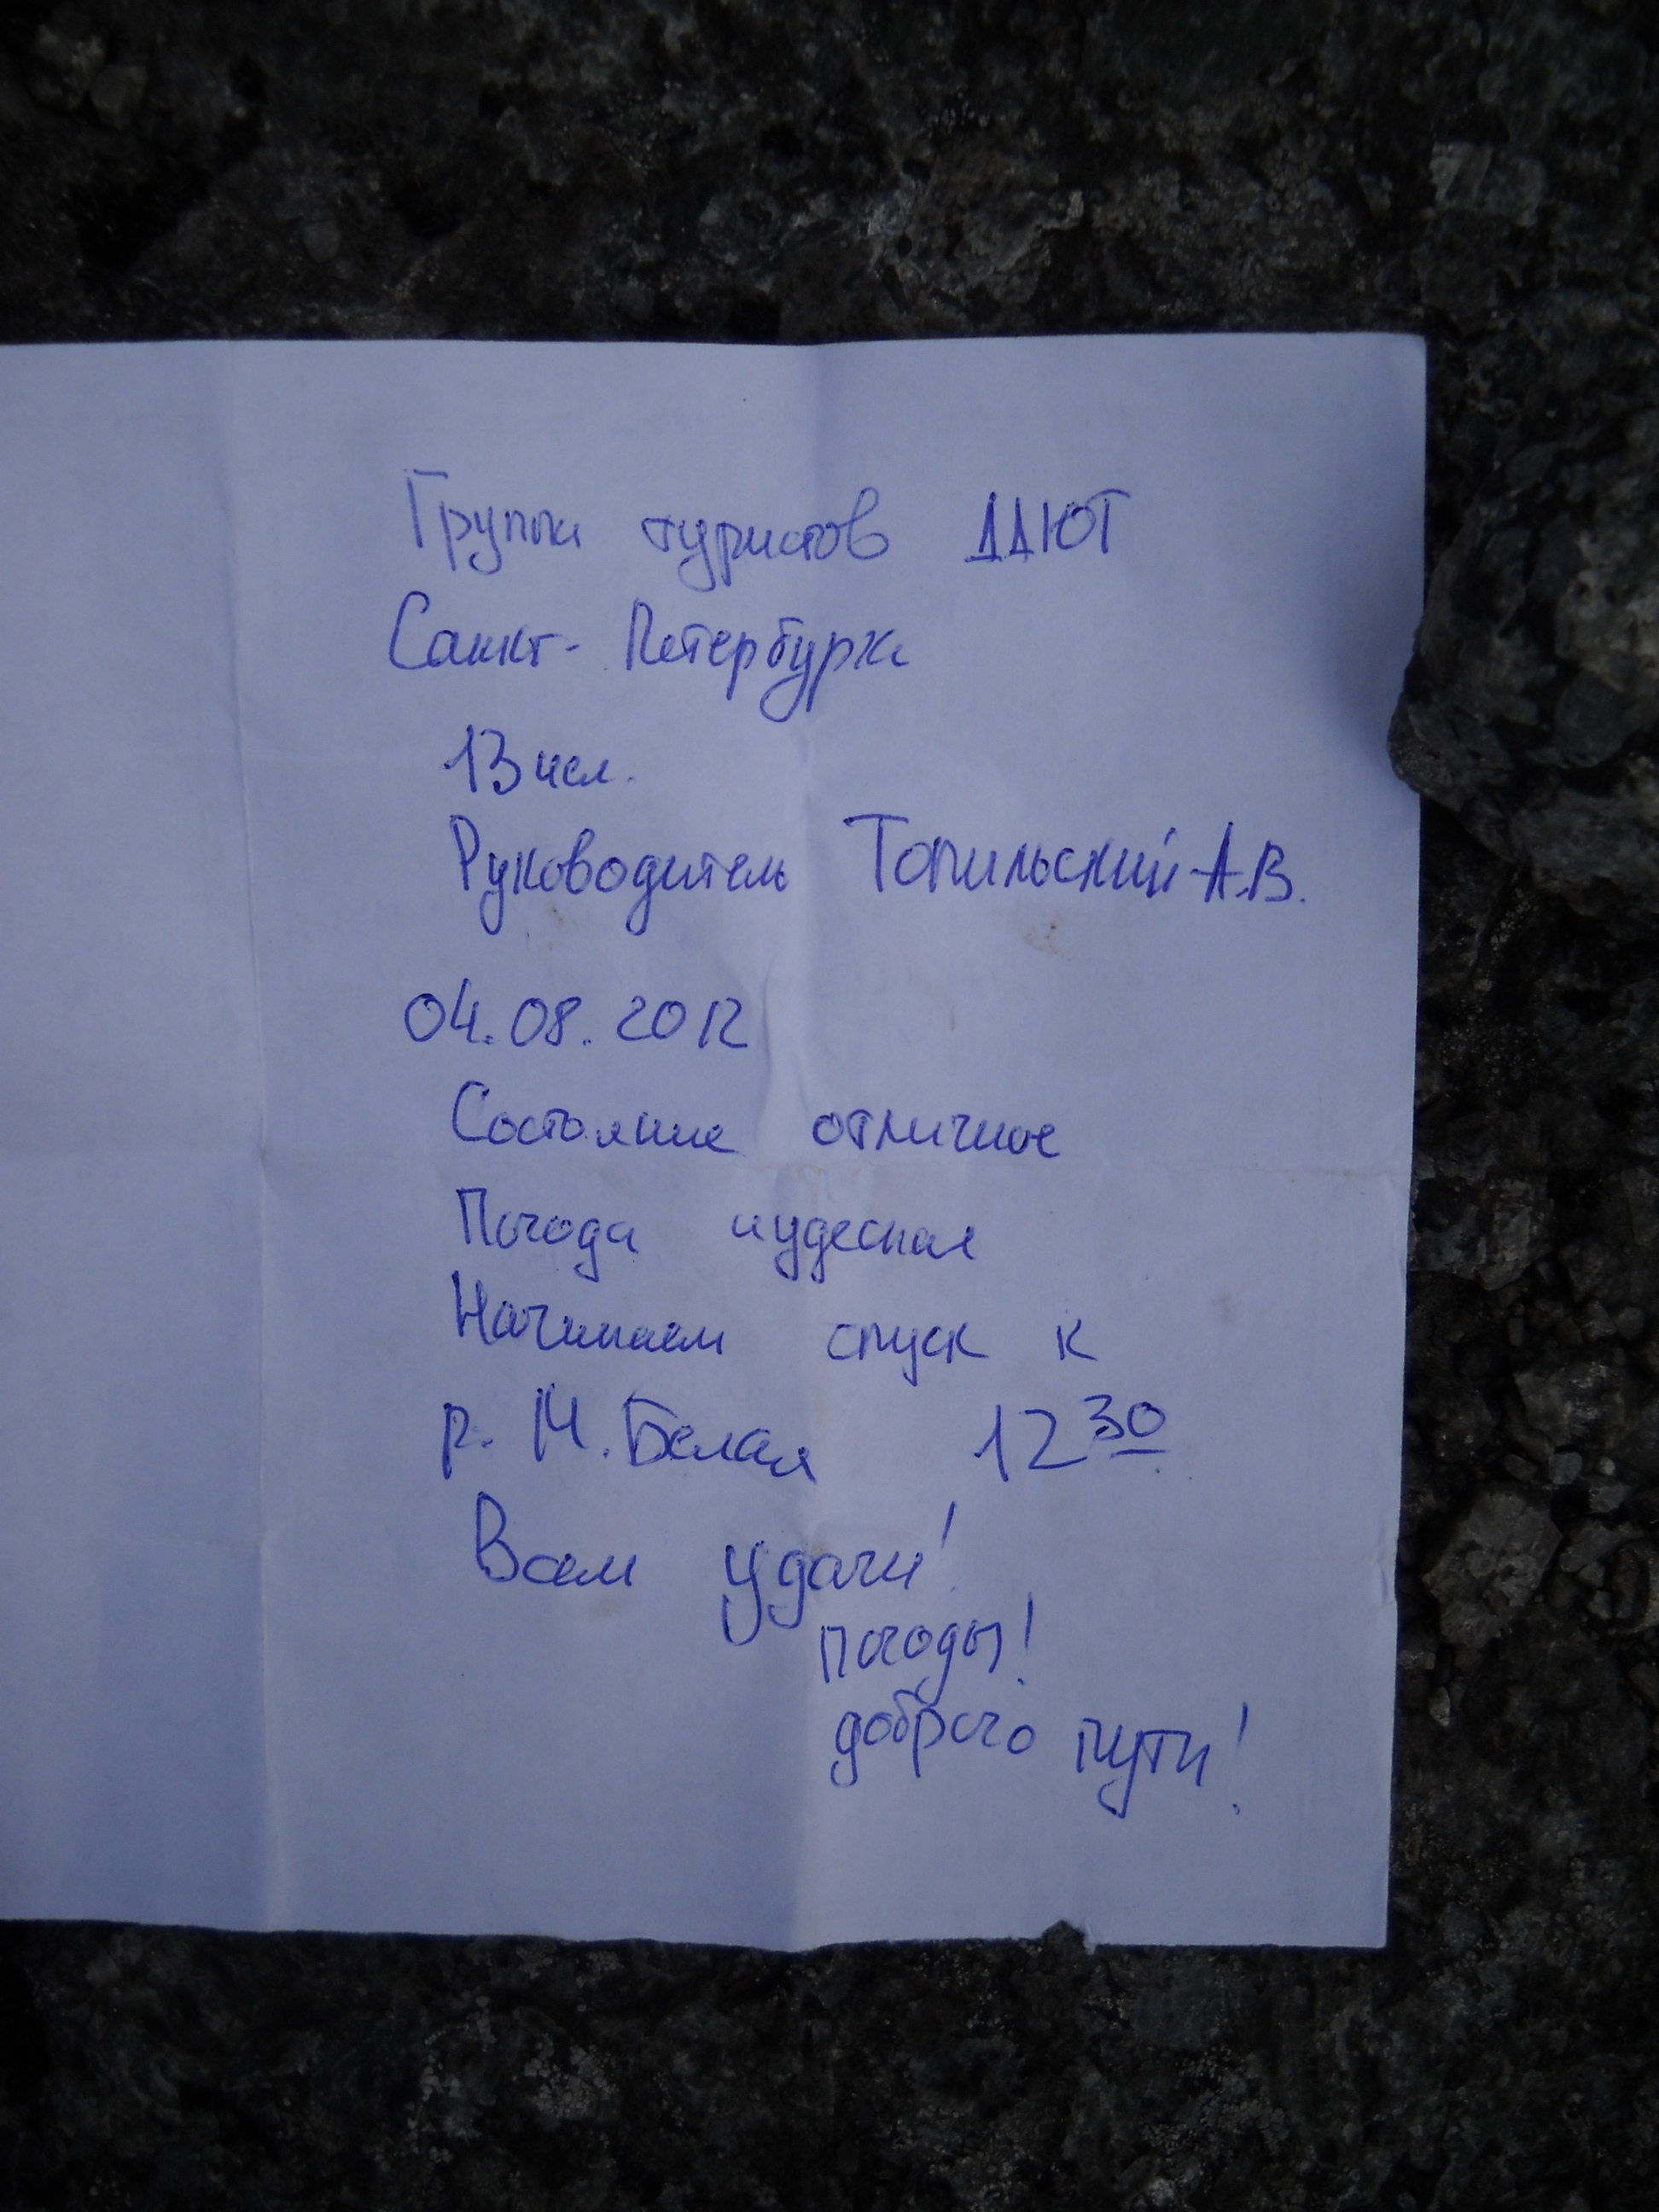 Группа туристов ДДЮТ
Санкт-Петербурга
13 чел.
Руководитель Топильский А.В.
04.08.2012
Состояние отличное
Погода чудесная
Начинаем спуск к
р. М. Белая 12 30
Вам удачи!
погоды!
доброго пути!